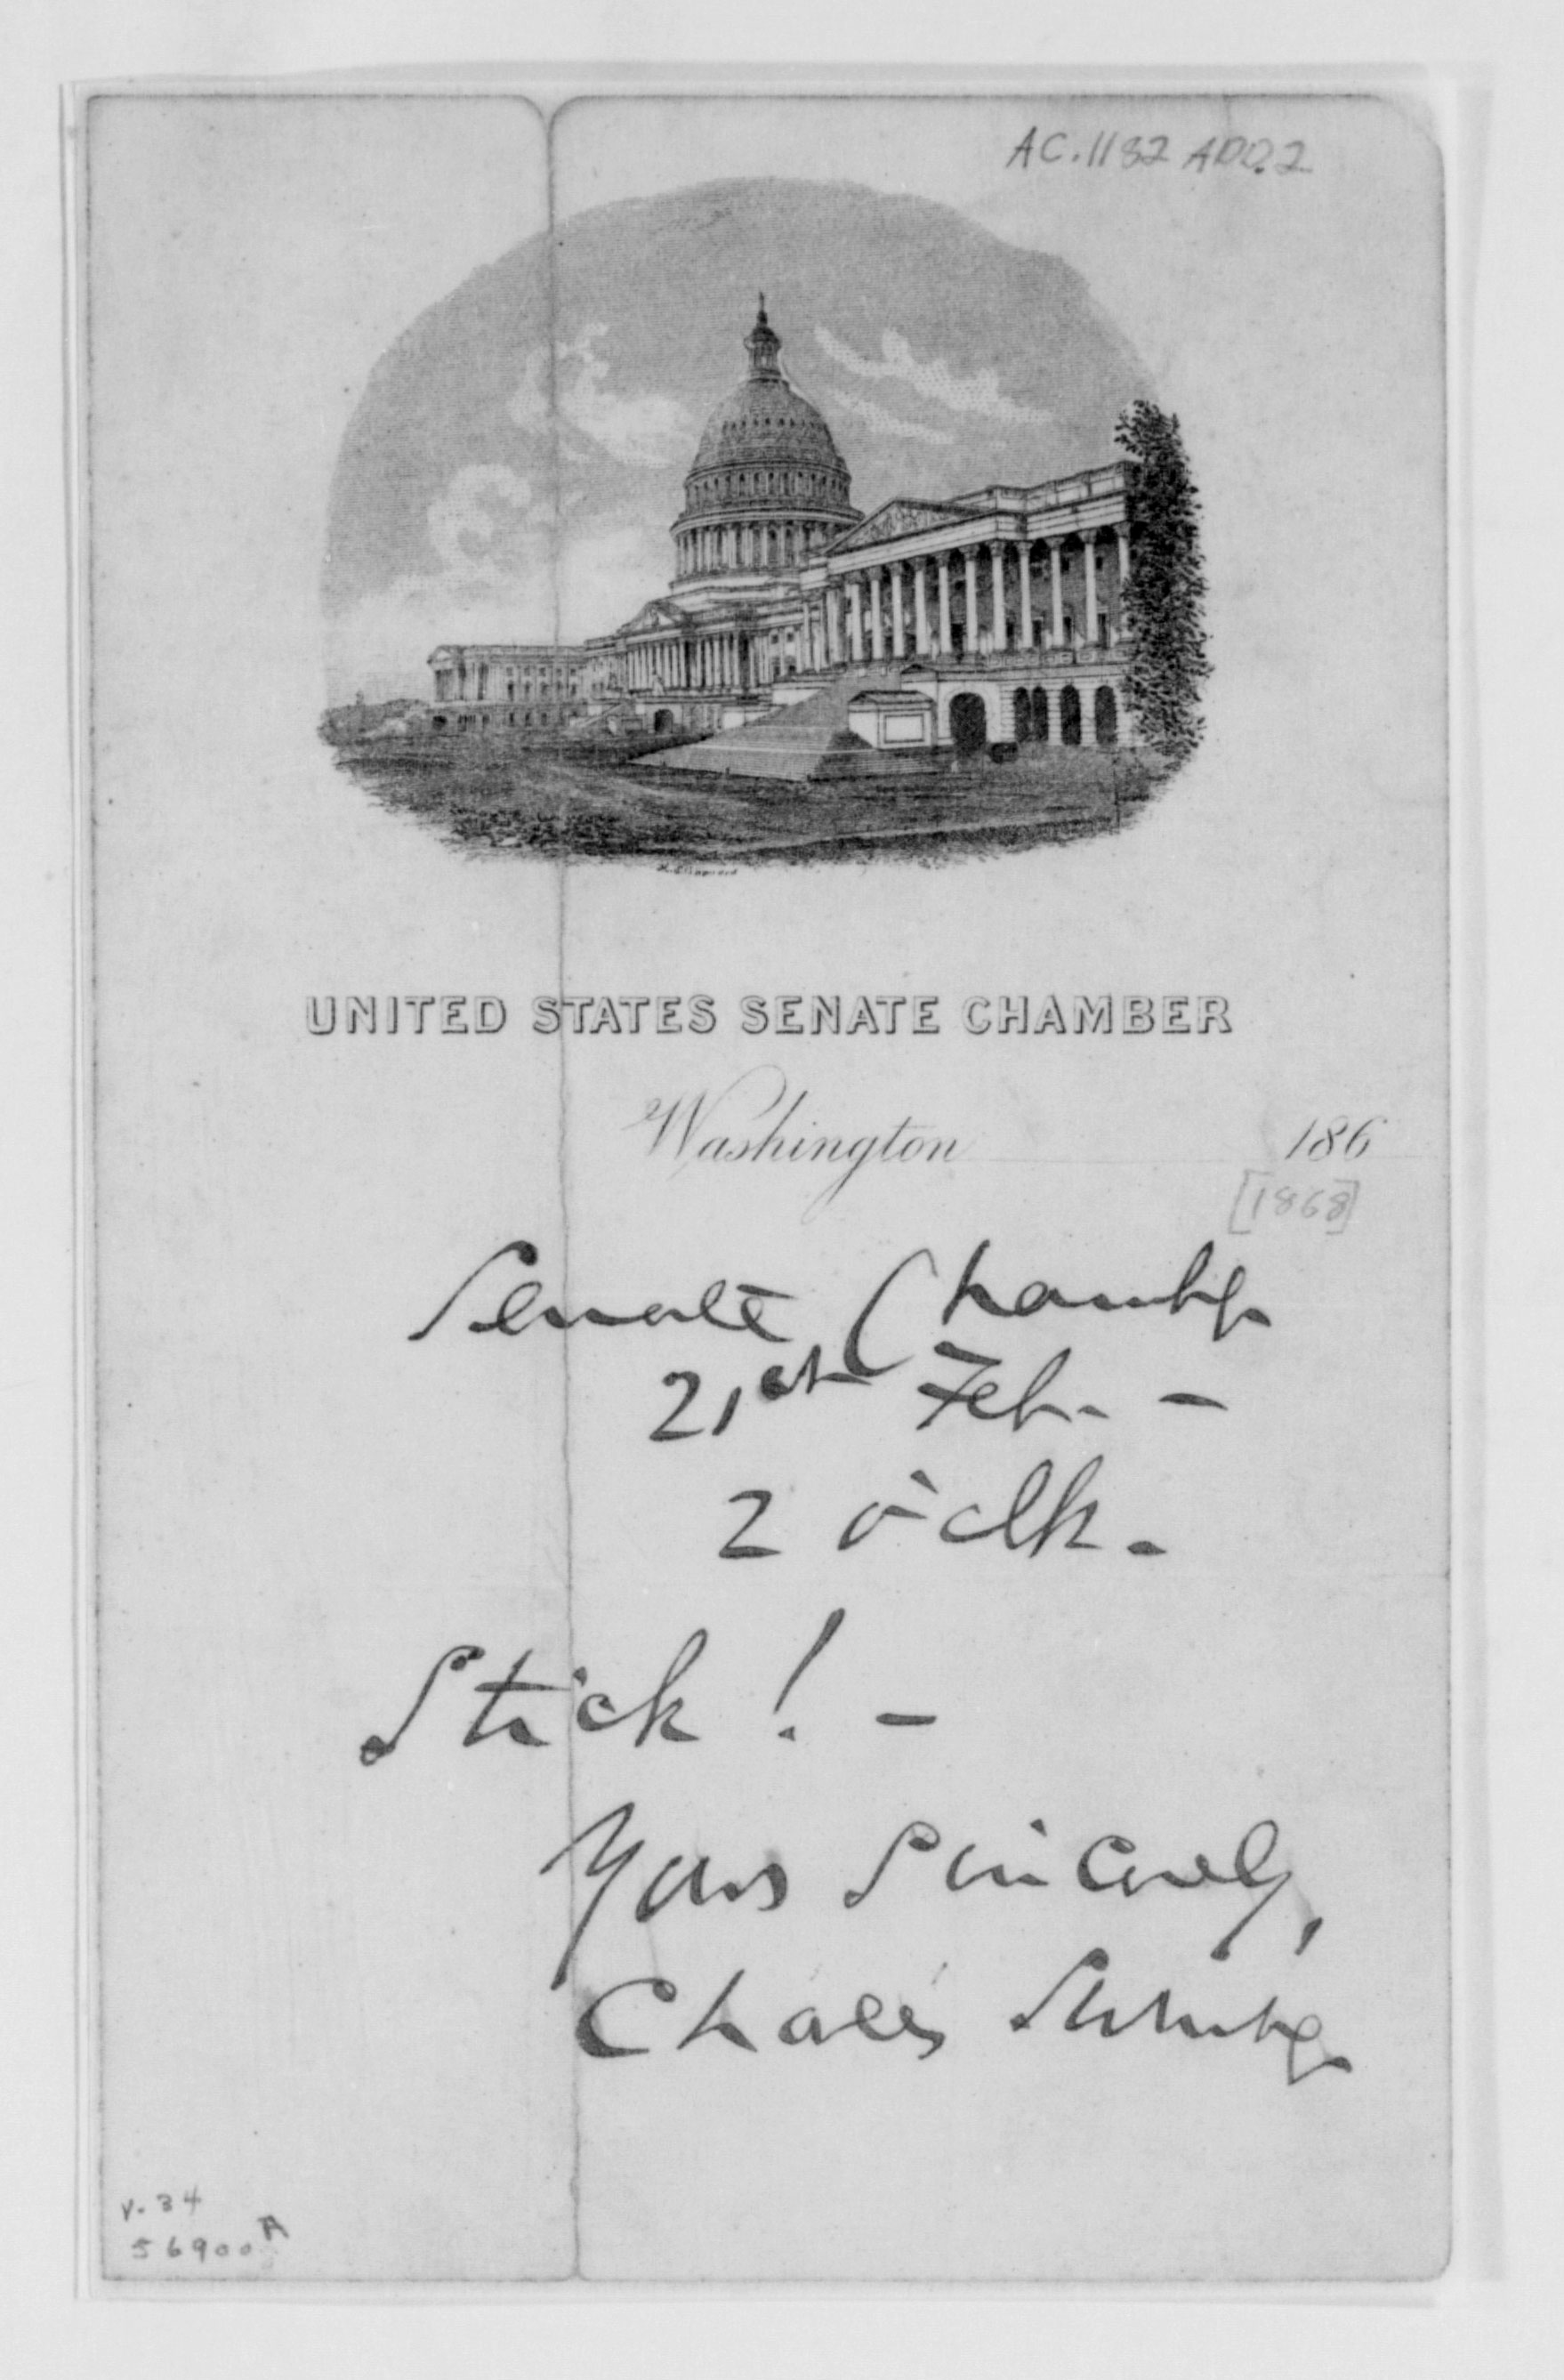 AC.1182 ADD.2
UNITED STATES SENATE CHAMBER
Washington 186
[1868]
Senate Chamber
21st Feb. -
2 o'clk.
Stick ! -
Yours sincerely,
Charles Sumner
v. 34
56900A